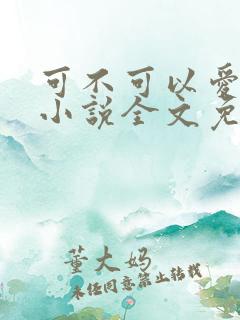 可不可以爱
小说全文免
董大妈
未经同意禁止转载